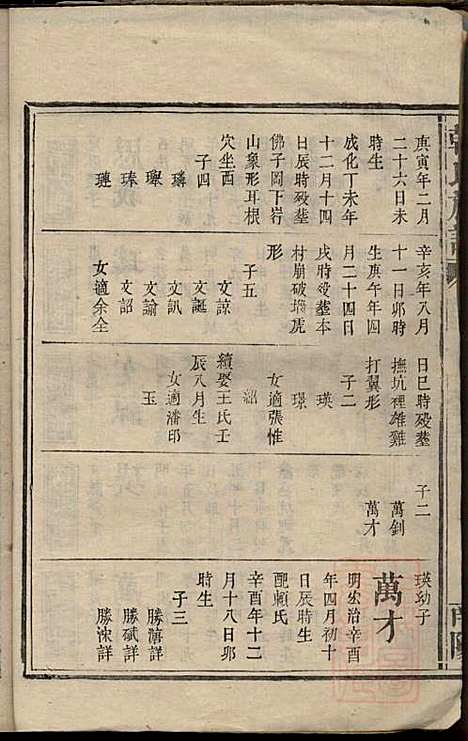 庚寅年二月
二十六日未
時生
成化丁未年
十二月十四
日辰時殁塟
佛子岡下嵙
山象形耳根
穴坐酉
子四
璘
璵
瑧
璉
辛亥年八月
十一日卯時
生庚午年四
月二十四日
戌時殁塟本
村崩破塘虎
形
子五
文諒
文誕
文訊
文諭
文詔
女適余全
日巳時殁塟
撫坑裡雄雞
打翼形
子二
瑛
璟
女適張惟
紹
續娶王氏壬
辰八月生
女適潘邱
玉
子二
萬釗
萬才
瑛幼子
萬才
明宏治辛酉
年四月初十
日辰時生
配賴氏
辛酉年十二
月十八日卯
時生
子三
勝瀳詳
勝斌詳
勝浤詳